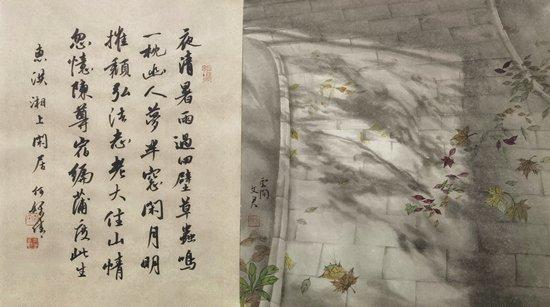 夜清暑雨過四壁草蟲鳴
一枕幽人夢半窓閑月明
摧頹弘法志老大住山情
忽憶陳尊宿編蒲度此生
惠洪湘上閑居
雲間
文君